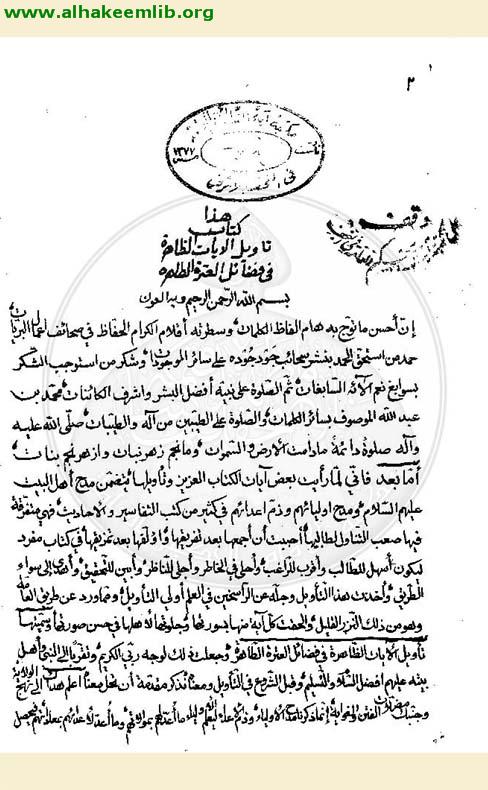 www.alhakeemlib.org
٢
هذا
كتاب
تاويل الايات الظاهرة
في فضائل العترة الطاهرة
بسم الله الرحمن الرحيم وبه العون
إن أحسن ما توج به هام الفاظ الكلمات وسطرته أقلام الكرام الحفاظ في صحائف أعمال البريات
حمد من استحق الحمد بنشر سحائب جوده على سائر الموجودات وشكر من استوجب الشكر
بسوابغ نعم الآئه السابغات ثم الصلوة على نبيه أفضل البشر واشرف الكائنات محمد بن
عبد الله الموصوف بسائر الكلمات والصلوة على الطيبين من آله والطيبات صلى الله عليه
وآله صلوة دائمة مادامت الارض والسموات وما نجم زهر نبات وازهر نجم بنات
أما بعد فاني لما رأيت بعض آيات الكتاب العزيز وتاويلها يتضمن مدح أهل البيت
عليهم السلام ومدح اوليائهم وذم اعدائهم في كثير من كتب التفاسير والأحاديث فهي متفرقة
فيها صعب التناول لطالبيها أحببت أن أجمعها بعد تفريقها وأؤلفها بعد تمزيقها في كتاب مفرد
ليكون أسهل للطالب وأقرب للراغب وأحلى في الخاطر وأجلى للناظر وأبين للتحقيق وأهدى إلى سواء
الطريق وأخذت هذا التأويل وجله عن الراسخين في العلم أولي التأويل ومما ورد عن طريق العامة
وهو من ذلك النزر القليل وألحقت كل آية منها بسورتها وجلوتها لأهلها في حسن صورتها وسميتها
تاويل الآيات الظاهرة في فضائل العترة الطاهرة وجعلت ذلك لوجه ربي الكريم وتقربا إلى النبي وأهل
بيته عليهم افضل الصلاة والتسليم وقبل الشروع في التأويل ومعناه نذكر مقدمة أعلم هداك إلى نهج الولاية
وجنبك الفتن والغواية إنما ذكرنا مدح الاولياء وذم الاعداء ليعلم